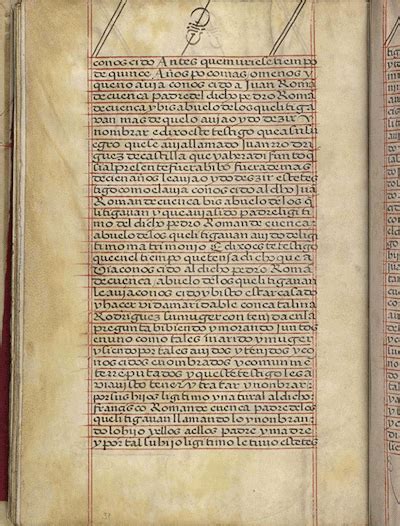 conoscido Antes que muriese tiempo
de quinze Años poco mas o menos y
que no avia conoscido a Juan Roma
de cuenca padre del dicho pedro Roma
de cuenca y bisabuelo de los que litiga
van mas de que lo avia oydo dezir y
nombrar e dixo este testigo que a su su
egro que se avia llamado Juan rrodri
guez de castilla que ya hera difunto q
si al presente fuera bibo fuera de mas
de cien años le avia oydo dezir este tes
tigo como el avia conoscido al dho Jua
Roman de cuenca bisabuelo de los q
litigavan y que avia sido padre ligiti
mo del dicho pedro Roman de cuenca
abuelo de los que litigavan avido de ligi
timo matrimonio E dixo este testigo
que en el tiempo que tenia dicho que a
via conoscido al dicho pedro Roma
de cuenca abuelo de los que litigavan
le avia conoscido y bisto estar casado
y hazer vida maridable con catalina
Rodriguez su muger contenida en la
pregunta bibiendo y morando juntos
en uno como tales marido y muger
y siendo por tales avidos y tenidos y co
noscidos e nombrados y comunmen
te rreputados y que este testigo les a
via visto tener y tratar y nonbrar
por su hijo ligitimo y natural al dicho
françisco Roman de cuenca padre de los
que litigavan llamandolo y nonbran
dolo hijo y el los a ellos padre y madre
y por tal su hijo ligitimo le tuvo este tes